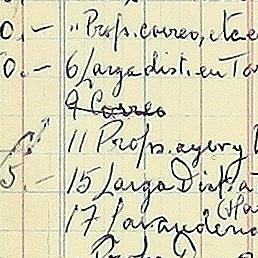 0.- " Profs. correo, etc e
0.- 6 Larga dist. en To
9 Correo
11 Profs. ayer y
5.- 15 Larga Dist. a
17 Lavanderia